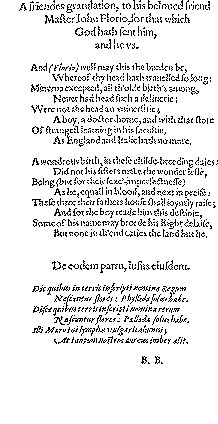 A friendes gratulation, to his beloved friend
Master John Florio, for that which
God hath sent him,
and he vs.
And (Florio) well may this the burden be,
Whereof thy head hath travelled so long;
Minerva excepted, all th'olde births among,
Never had head such a
Were not the head an vniversitie;
A boy, a doctor-borne, and with that store
Of strangest learning in his facultie,
As England and Italie hath no more.
A wondrous birth, in these childe-breeding daies:
Did not his sisters make the wonder lesse,
Being (but for their sexe-imperfectnesse)
As he, equall in blood, and next in praise:
These three their fathers house shall joyntly raise;
And for the boy reade him this destinie,
Some of his name may brooke his Right delaise,
But none in th'end caries the land but he.
De eodem partu, lusus eiusdem.
Dic quibus in terris inscripti nomina Regum
Nascuntur flores: Phyllida solus habe.
Disce quibus in terris inscripti nomina rerum
Nascuntur flores: Pallada solus habe.
Isti Maro tot lymphæ vulgaris alumni;
At tantùm nostros aureus imber alit.
B. B.